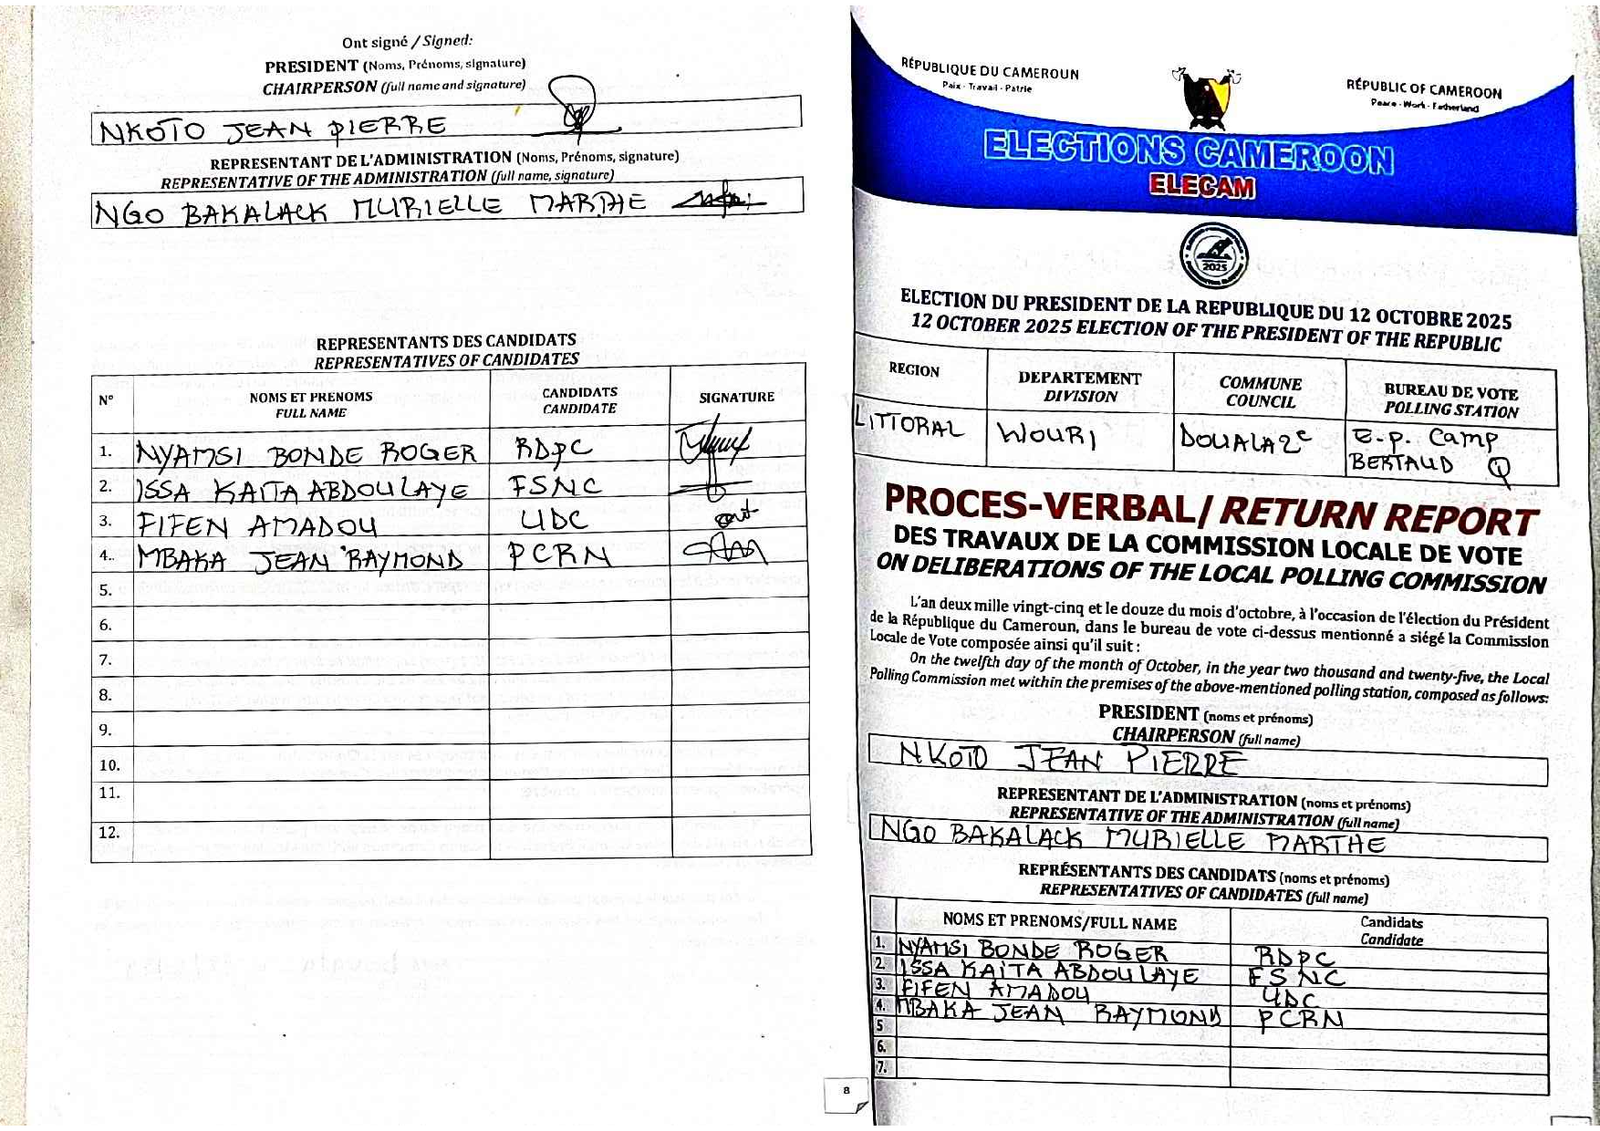 Ont signé / Signed:
PRESIDENT (Noms, Prénoms, signature)
CHAIRPERSON (full name and signature)
NKOTO JEAN PIERRE
REPRESENTANT DE L'ADMINISTRATION (Noms, Prénoms, signature)
REPRESENTATIVE OF THE ADMINISTRATION (full name, signature)
NGO BAKALACK MURIELLE MARTHE
REPRESENTANTS DES CANDIDATS
REPRESENTATIVES OF CANDIDATES
N° NOMS ET PRENOMS CANDIDATS SIGNATURE
FULL NAME CANDIDATE
1. NYAMSI BONDE ROGER RDPC
2. ISSA KAITA ABDOULAYE FSNC
3. FIFEN AMADOU UDC
4. MBAKA JEAN RAYMOND PCRN
5.
6.
7.
8.
9.
10.
11.
12.
8
RÉPUBLIQUE DU CAMEROUN
Paix - Travail - Patrie
RÉPUBLIC OF CAMEROON
Peace - Work - Fatherland
ELECTIONS CAMEROON
ELECAM
2025
ELECTION DU PRESIDENT DE LA REPUBLIQUE DU 12 OCTOBRE 2025
12 OCTOBER 2025 ELECTION OF THE PRESIDENT OF THE REPUBLIC
REGION DEPARTEMENT COMMUNE BUREAU DE VOTE
DIVISION COUNCIL POLLING STATION
LITTORAL WOURI DOUALA 2e E.P. Camp
BERTAUD Q
PROCES-VERBAL/ RETURN REPORT
DES TRAVAUX DE LA COMMISSION LOCALE DE VOTE
ON DELIBERATIONS OF THE LOCAL POLLING COMMISSION
L'an deux mille vingt-cinq et le douze du mois d'octobre, à l'occasion de l'élection du Président
de la République du Cameroun, dans le bureau de vote ci-dessus mentionné a siégé la Commission
Locale de Vote composée ainsi qu'il suit :
On the twelfth day of the month of October, in the year two thousand and twenty-five, the Local
Polling Commission met within the premises of the above-mentioned polling station, composed as follows:
PRESIDENT (noms et prénoms)
CHAIRPERSON (full name)
NKOTO JEAN PIERRE
REPRESENTANT DE L'ADMINISTRATION (noms et prénoms)
REPRESENTATIVE OF THE ADMINISTRATION (full name)
NGO BAKALACK MURIELLE MARTHE
REPRÉSENTANTS DES CANDIDATS (noms et prénoms)
REPRESENTATIVES OF CANDIDATES (full name)
NOMS ET PRENOMS/FULL NAME Candidats
Candidate
1. NYAMSI BONDE ROGER RDPC
2. ISSA KAITA ABDOULAYE FSNC
3. FIFEN AMADOU UDC
4. MBAKA JEAN RAYMOND PCRN
5
6.
7.